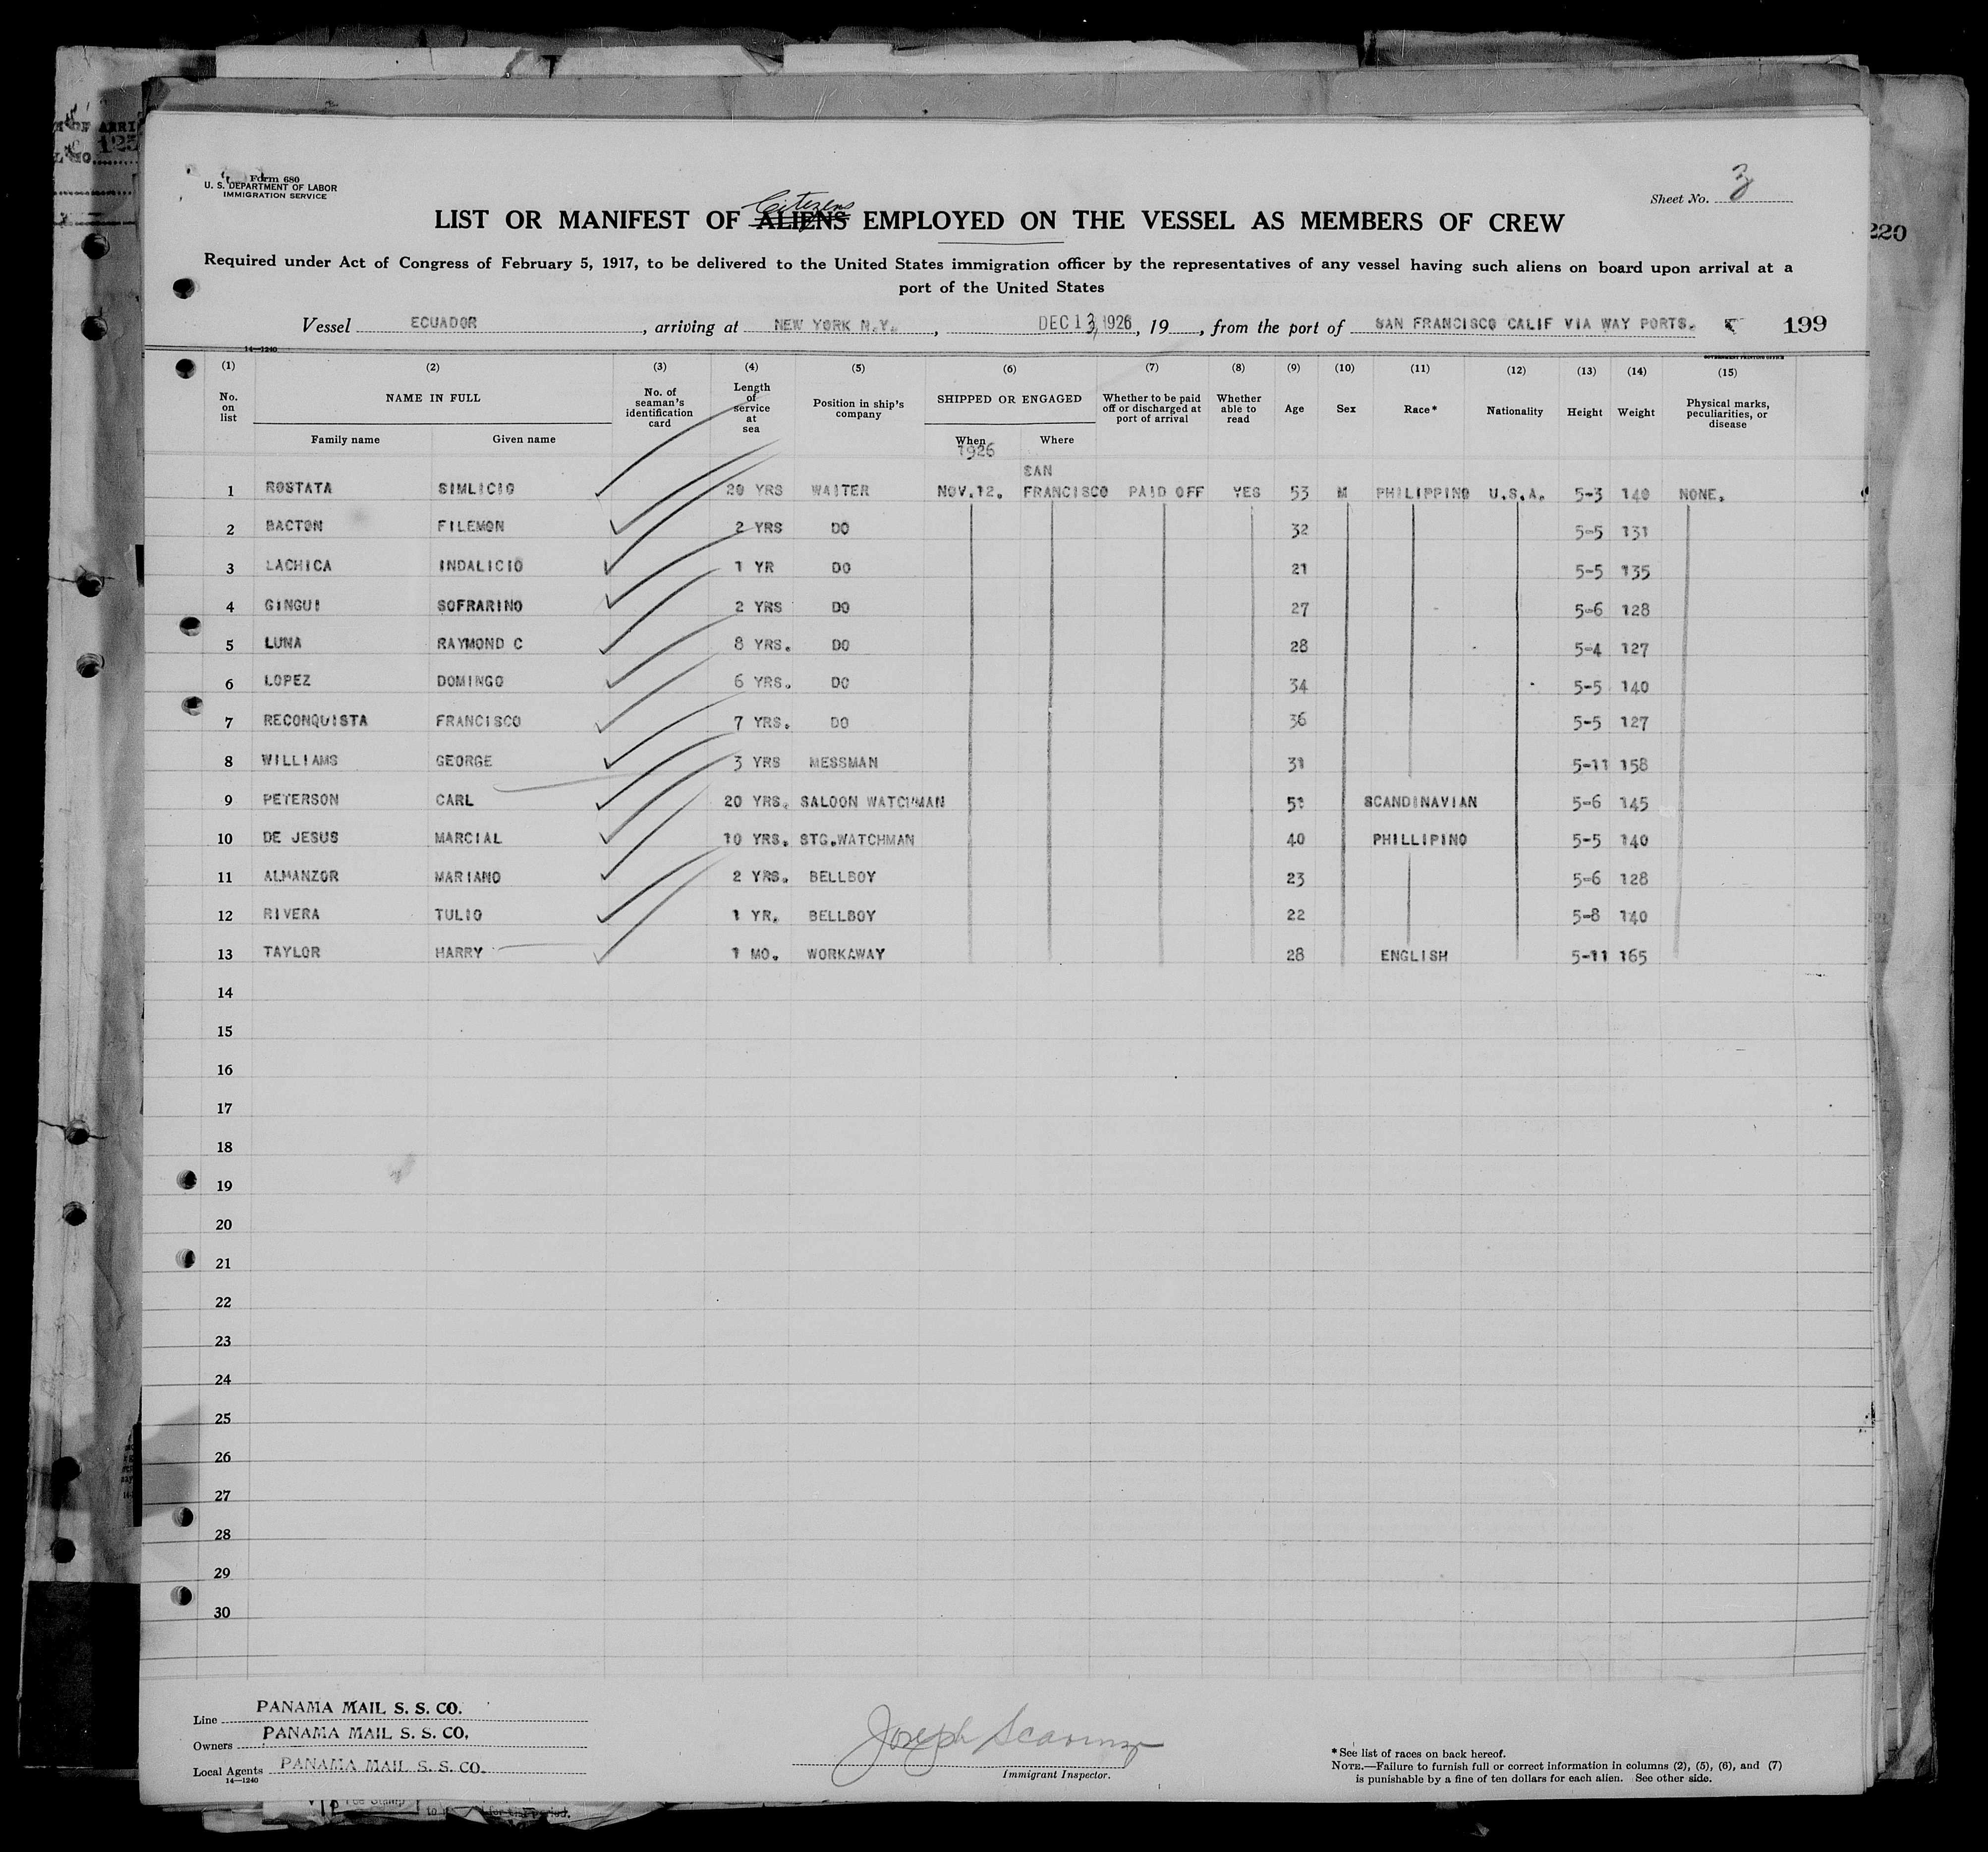 Form 680
U. S. DEPARTMENT OF LABOR
IMMIGRATION SERVICE
Sheet No. 3
Citizens
LIST OR MANIFEST OF ALIENS EMPLOYED ON THE VESSEL AS MEMBERS OF CREW
220
Required under Act of Congress of February 5, 1917, to be delivered to the United States immigration officer by the representatives of any vessel having such aliens on board upon arrival at a
port of the United States
Vessel ECUADOR, arriving at NEW YORK N.Y., DEC 13 1926, 19, from the port of SAN FRANCISCO CALIF VIA WAY PORTS. 199
14—1240 GOVERNMENT PRINTING OFFICE
(1) (2) (3) (4) (5) (6) (7) (8) (9) (10) (11) (12) (13) (14) (15)
No. on list NAME IN FULL No. of seaman's identification card Length of service at sea Position in ship's company SHIPPED OR ENGAGED Whether to be paid off or discharged at port of arrival Whether able to read Age Sex Race* Nationality Height Weight Physical marks, peculiarities, or disease
Family name Given name When Where
1926
SAN
1 ROSTATA SIMLICIO 20 YRS WAITER NOV.12. FRANCISCO PAID OFF YES 53 M PHILIPPINO U.S.A. 5-3 140 NONE.
2 BACTON FILEMON 2 YRS DO 32 5-5 131
3 LACHICA INDALICIO 1 YR DO 21 5-5 135
4 GINGUI SOFRARINO 2 YRS DO 27 5-6 128
5 LUNA RAYMOND C 8 YRS. DO 28 5-4 127
6 LOPEZ DOMINGO 6 YRS. DO 34 5-5 140
7 RECONQUISTA FRANCISCO 7 YRS. DO 36 5-5 127
8 WILLIAMS GEORGE 3 YRS MESSMAN 31 5-11 158
9 PETERSON CARL 20 YRS. SALOON WATCHMAN 51 SCANDINAVIAN 5-6 145
10 DE JESUS MARCIAL 10 YRS. STG.WATCHMAN 40 PHILLIPINO 5-5 140
11 ALMANZOR MARIANO 2 YRS. BELLBOY 23 5-6 128
12 RIVERA TULIO 1 YR. BELLBOY 22 5-8 140
13 TAYLOR HARRY 1 MO. WORKAWAY 28 ENGLISH 5-11 165
14
15
16
17
18
19
20
21
22
23
24
25
26
27
28
29
30
Line PANAMA MAIL S. S. CO.
Owners PANAMA MAIL S. S. CO.
Local Agents PANAMA MAIL S. S. CO.
14—1240
Joseph
Immigrant Inspector.
*See list of races on back hereof.
NOTE.—Failure to furnish full or correct information in columns (2), (5), (6), and (7)
is punishable by a fine of ten dollars for each alien. See other side.